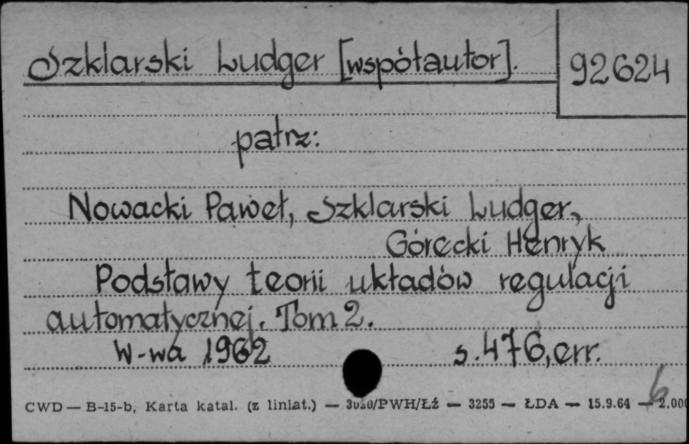 Szklarski Ludger [współautor].
92624
patrz:
Nowacki Paweł, Szklarski Ludger,
Górecki Henryk
Podstawy teorii układów regulacji
automatycznej. Tom 2.
W-wa 1962 s. 476, err.
CWD — B-15-b, Karta katal. (z liniat.) — 3020/PWH/Łź — 3255 — ŁDA — 15.9.64 — 2.000
6